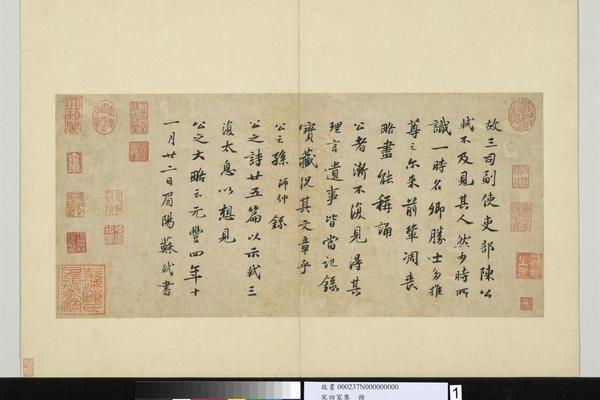 故三司副使吏部陳公
軾不及見其人然少時所
識一時名卿勝士多推
尊之尓来前輩凋喪
略盡能稱誦
公者漸不復見得其
理言遺事皆當記錄
寶藏況其文章乎
公之孫師仲錄
公之詩廿五篇以示軾三
復太息以想見
公之大略云元豐四年十
一月廿二日眉陽蘇軾書
故書 000237N000000000
宋四家集 冊
1